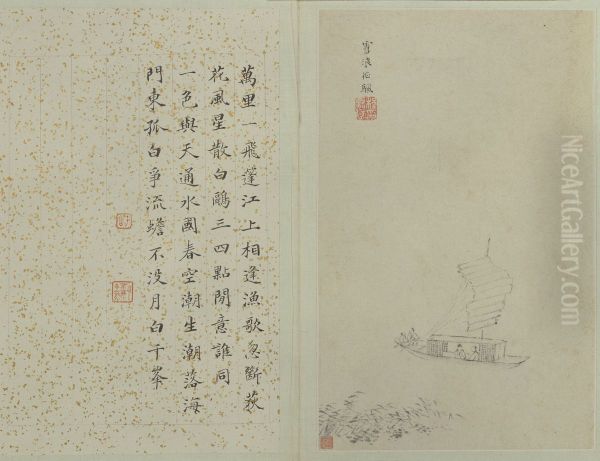 雪浪
萬里一飛篷江上相逢漁歌忽斷荻
花風星散白鷗三四點閒意誰同
一色與天通水國春空潮生潮落海
門東孤白爭流蟾不没月白千峯
NiceArtGallery.com